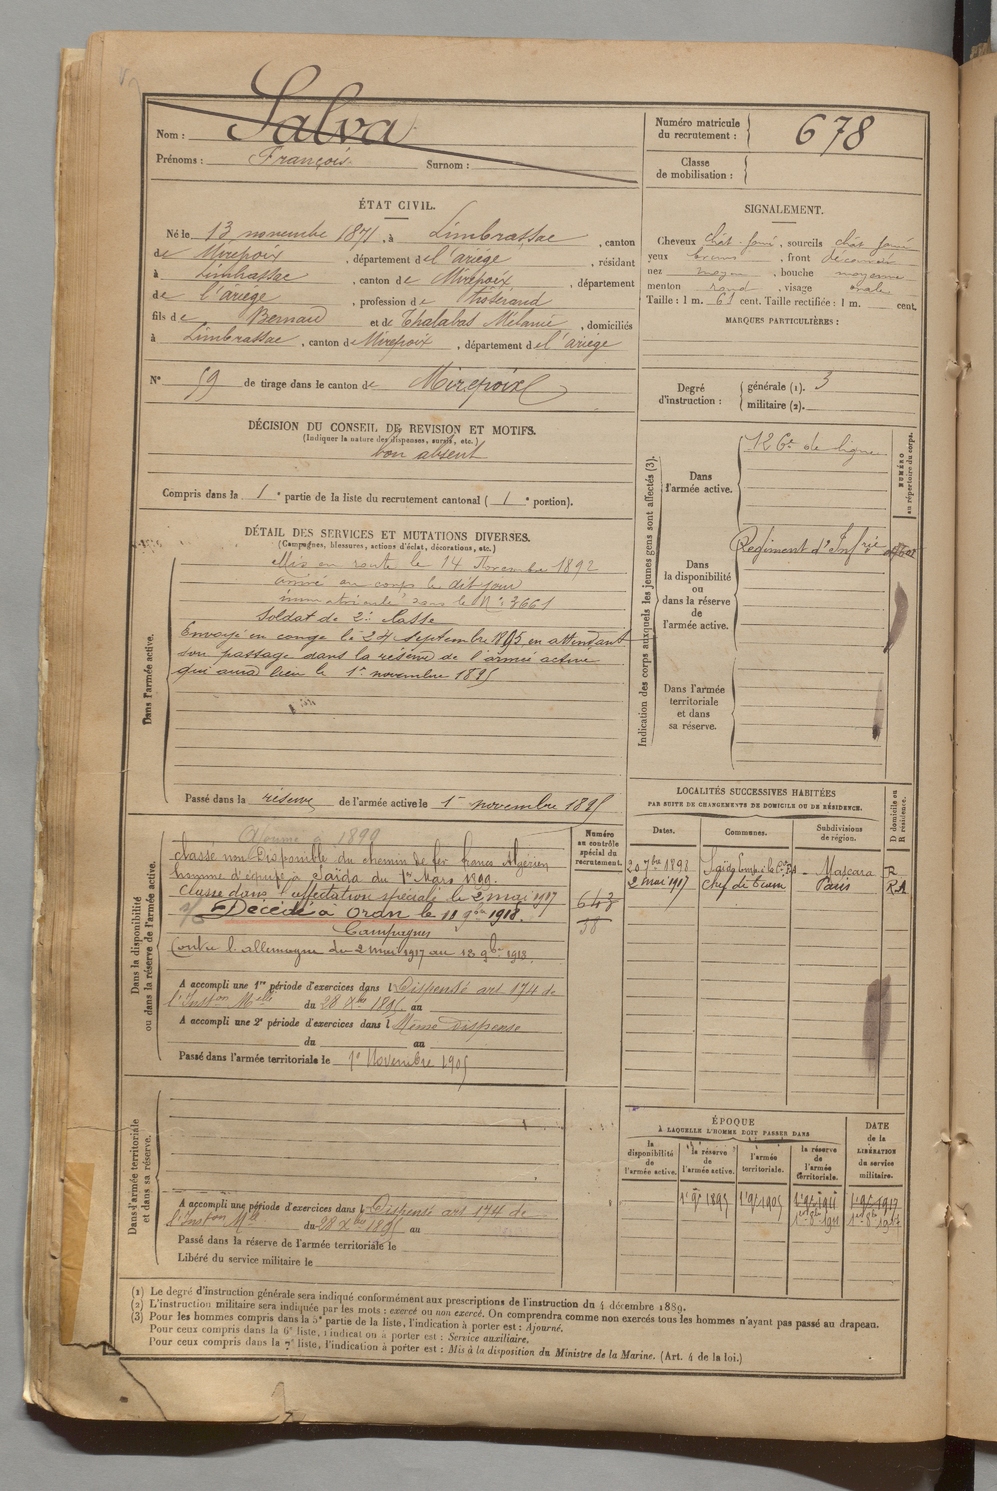 Nom : Salva
Prénoms : François. Surnom :
Numéro matricule du recrutement : 678
Classe de mobilisation :
ÉTAT CIVIL.
Né le 13 novembre 1871, à Limbrassac, canton
de Mirepoix, département de l'ariège, résidant
à Limbrassac, canton de Mirepoix, département
de l'ariège, profession de Tisserand
fils de Bernard et de Thalabas Mélanie, domiciliés
à Limbrassac, canton de Mirepoix, département de l'ariège
N° 59 de tirage dans le canton de Mirepoix
SIGNALEMENT.
Cheveux chât-foncé, sourcils chât foncé
yeux bruns, front découvert
nez moyen, bouche moyenne
menton rond, visage ovale
Taille : 1 m. 61 cent. Taille rectifiée : 1 m. cent.
MARQUES PARTICULIÈRES :
Degré d'instruction : générale (1). 3
militaire (2).
DÉCISION DU CONSEIL DE REVISION ET MOTIFS.
(Indiquer la nature des dispenses, sursis, etc.)
bon absent
Compris dans la 1e partie de la liste du recrutement cantonal (1e portion).
DÉTAIL DES SERVICES ET MUTATIONS DIVERSES.
(Campagnes, blessures, actions d'éclat, décorations, etc.)
Dans l'armée active.
Mis en route le 14 Novembre 1892
arrivé au corps le dit jour
immatriculé sous le N° 3661
Soldat de 2e classe
Envoyé en congé le 24 septembre 1895 en attendant
son passage dans la réserve de l'armée active
qui aura lieu le 1er novembre 1895
Passé dans la réserve de l'armée active le 1er novembre 1895
Indication des corps auxquels les jeunes gens sont affectés (3).
NUMÉRO au répertoire du corps.
Dans l'armée active.
126e de ligne
Dans la disponibilité ou dans la réserve de l'armée active.
Régiment d'Infrie
Dans l'armée territoriale et dans sa réserve.
Dans la disponibilité ou dans la réserve de l'armée active.
Numéro au contrôle spécial du recrutement.
Ajourné à 1899
classé non Disponible du chemin de fer franco Algérien
homme d'équipe à Saïda du 1er Mars 1899.
Classé dans l'affectation spéciale le 2 mai 1917
Décédé à Oran le 18 9bre 1918.
Campagnes
Contre l'allemagne du 2 mai 1917 au 18 9bre 1918.
643
58
A accompli une 1re période d'exercices dans l Dispensé art 174 de
l'Inston Mlle du 28 Xbre 1895 au
A accompli une 2e période d'exercices dans l Même Dispense
du au
Passé dans l'armée territoriale le 1er Novembre 1905
LOCALITÉS SUCCESSIVES HABITÉES
PAR SUITE DE CHANGEMENTS DE DOMICILE OU DE RÉSIDENCE.
Dates. Communes. Subdivisions de région. D domicile ou R résidence.
20 7bre 1898 Saïda Mascara R
2 mai 1917 chef de train Paris
Dans l'armée territoriale et dans sa réserve.
A accompli une période d'exercices dans l Dispensé art 174 de
l'Inston Mlle du 28 Xbre 1895 au
Passé dans la réserve de l'armée territoriale le
Libéré du service militaire le
ÉPOQUE
À LAQUELLE L'HOMME DOIT PASSER DANS
la disponibilité de l'armée active.
la réserve de l'armée active.
l'armée territoriale.
la réserve de l'armée territoriale.
DATE de la LIBÉRATION du service militaire.
1er 9bre 1895 1er 9bre 1905 1er 9bre 1911 1er 9bre 1917
(1) Le degré d'instruction générale sera indiqué conformément aux prescriptions de l'instruction du 4 décembre 1889.
(2) L'instruction militaire sera indiquée par les mots : exercé ou non exercé. On comprendra comme non exercés tous les hommes n'ayant pas passé au drapeau.
(3) Pour les hommes compris dans la 5e partie de la liste, l'indication à porter est : Ajourné.
Pour ceux compris dans la 6e liste, l'indication à porter est : Service auxiliaire.
Pour ceux compris dans la 7e liste, l'indication à porter est : Mis à la disposition du Ministre de la Marine. (Art. 4 de la loi.)